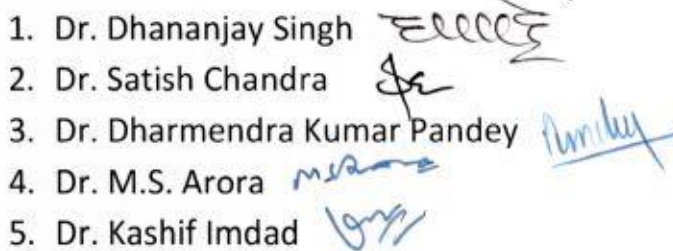 1. Dr. Dhananjay Singh
2. Dr. Satish Chandra
3. Dr. Dharmendra Kumar Pandey
4. Dr. M.S. Arora
5. Dr. Kashif Imdad